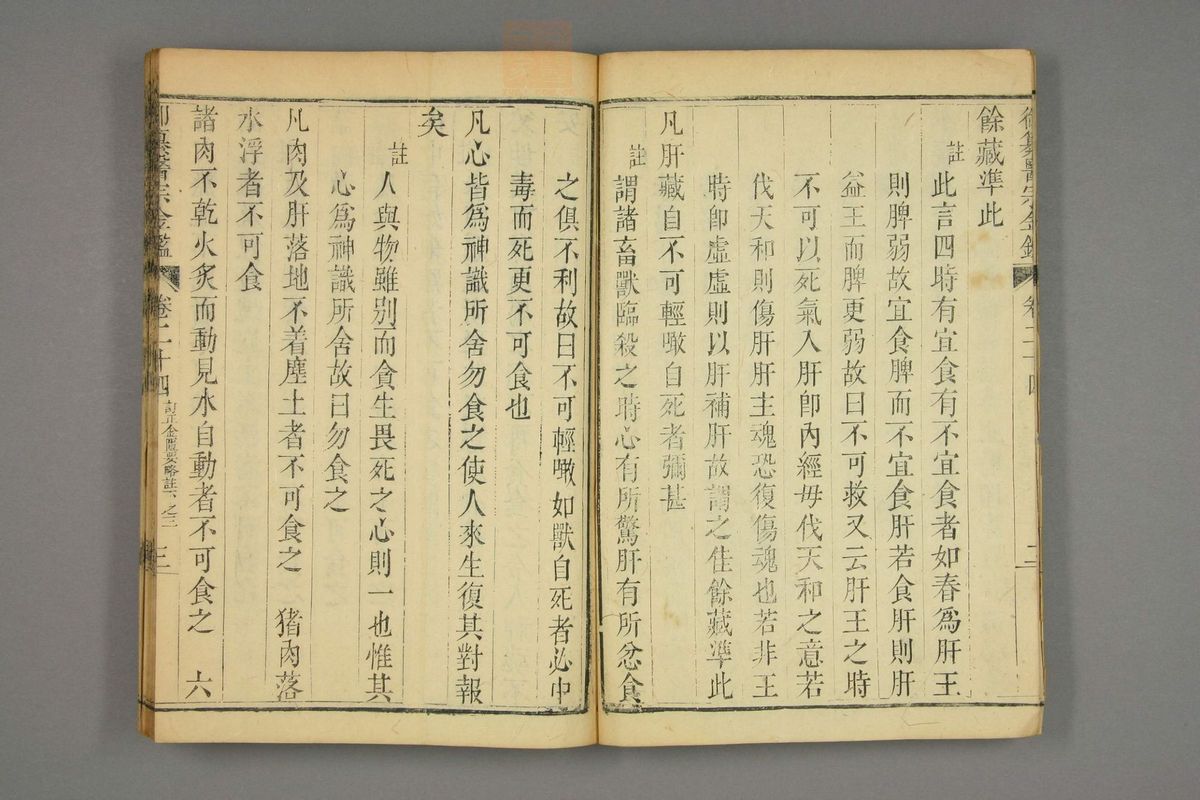 醫宗金鑑 卷二十四 二
餘藏準此
註 此言四時有宜食有不宜食者如春爲肝王
則脾弱故宜食脾而不宜食肝若食肝則肝
益王而脾更弱故曰不可救又云肝王之時
不可以死氣入肝卽內經毋伐天和之意若
伐天和則傷肝肝主魂恐復傷魂也若非王
時卽虛虛則以肝補肝故謂之佳餘藏準此
凡肝藏自不可輕噉自死者彌甚
註 謂諸畜獸臨殺之時心有所驚肝有所忿食
之俱不利故曰不可輕噉如獸自死者必中
毒而死更不可食也
凡心皆爲神識所舍勿食之使人來生復其對報
矣
註 人與物雖別而貪生畏死之心則一也惟其
心爲神識所舍故曰勿食之
凡肉及肝落地不着塵土者不可食之 猪肉落
水浮者不可食
諸肉不乾火炙而動見水自動者不可食之 六
醫宗金鑑 卷二十四 訂正金匱要略註下之三 三